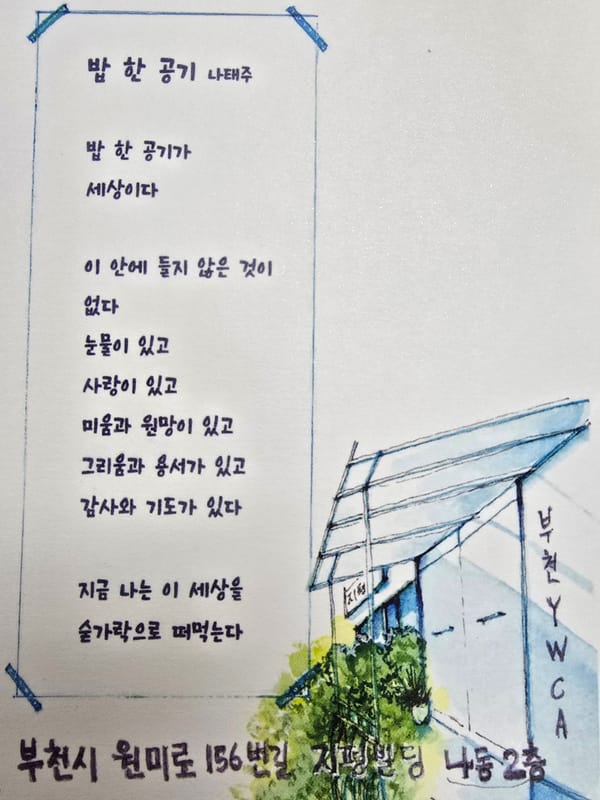 밥 한 공기 나태주
밥 한 공기가
세상이다
이 안에 들지 않은 것이
없다
눈물이 있고
사랑이 있고
미움과 원망이 있고
그리움과 용서가 있고
감사와 기도가 있다
지금 나는 이 세상을
숟가락으로 떠먹는다
지평
부천YWCA
부천시 원미로156번길 지평빌딩 나동 2층